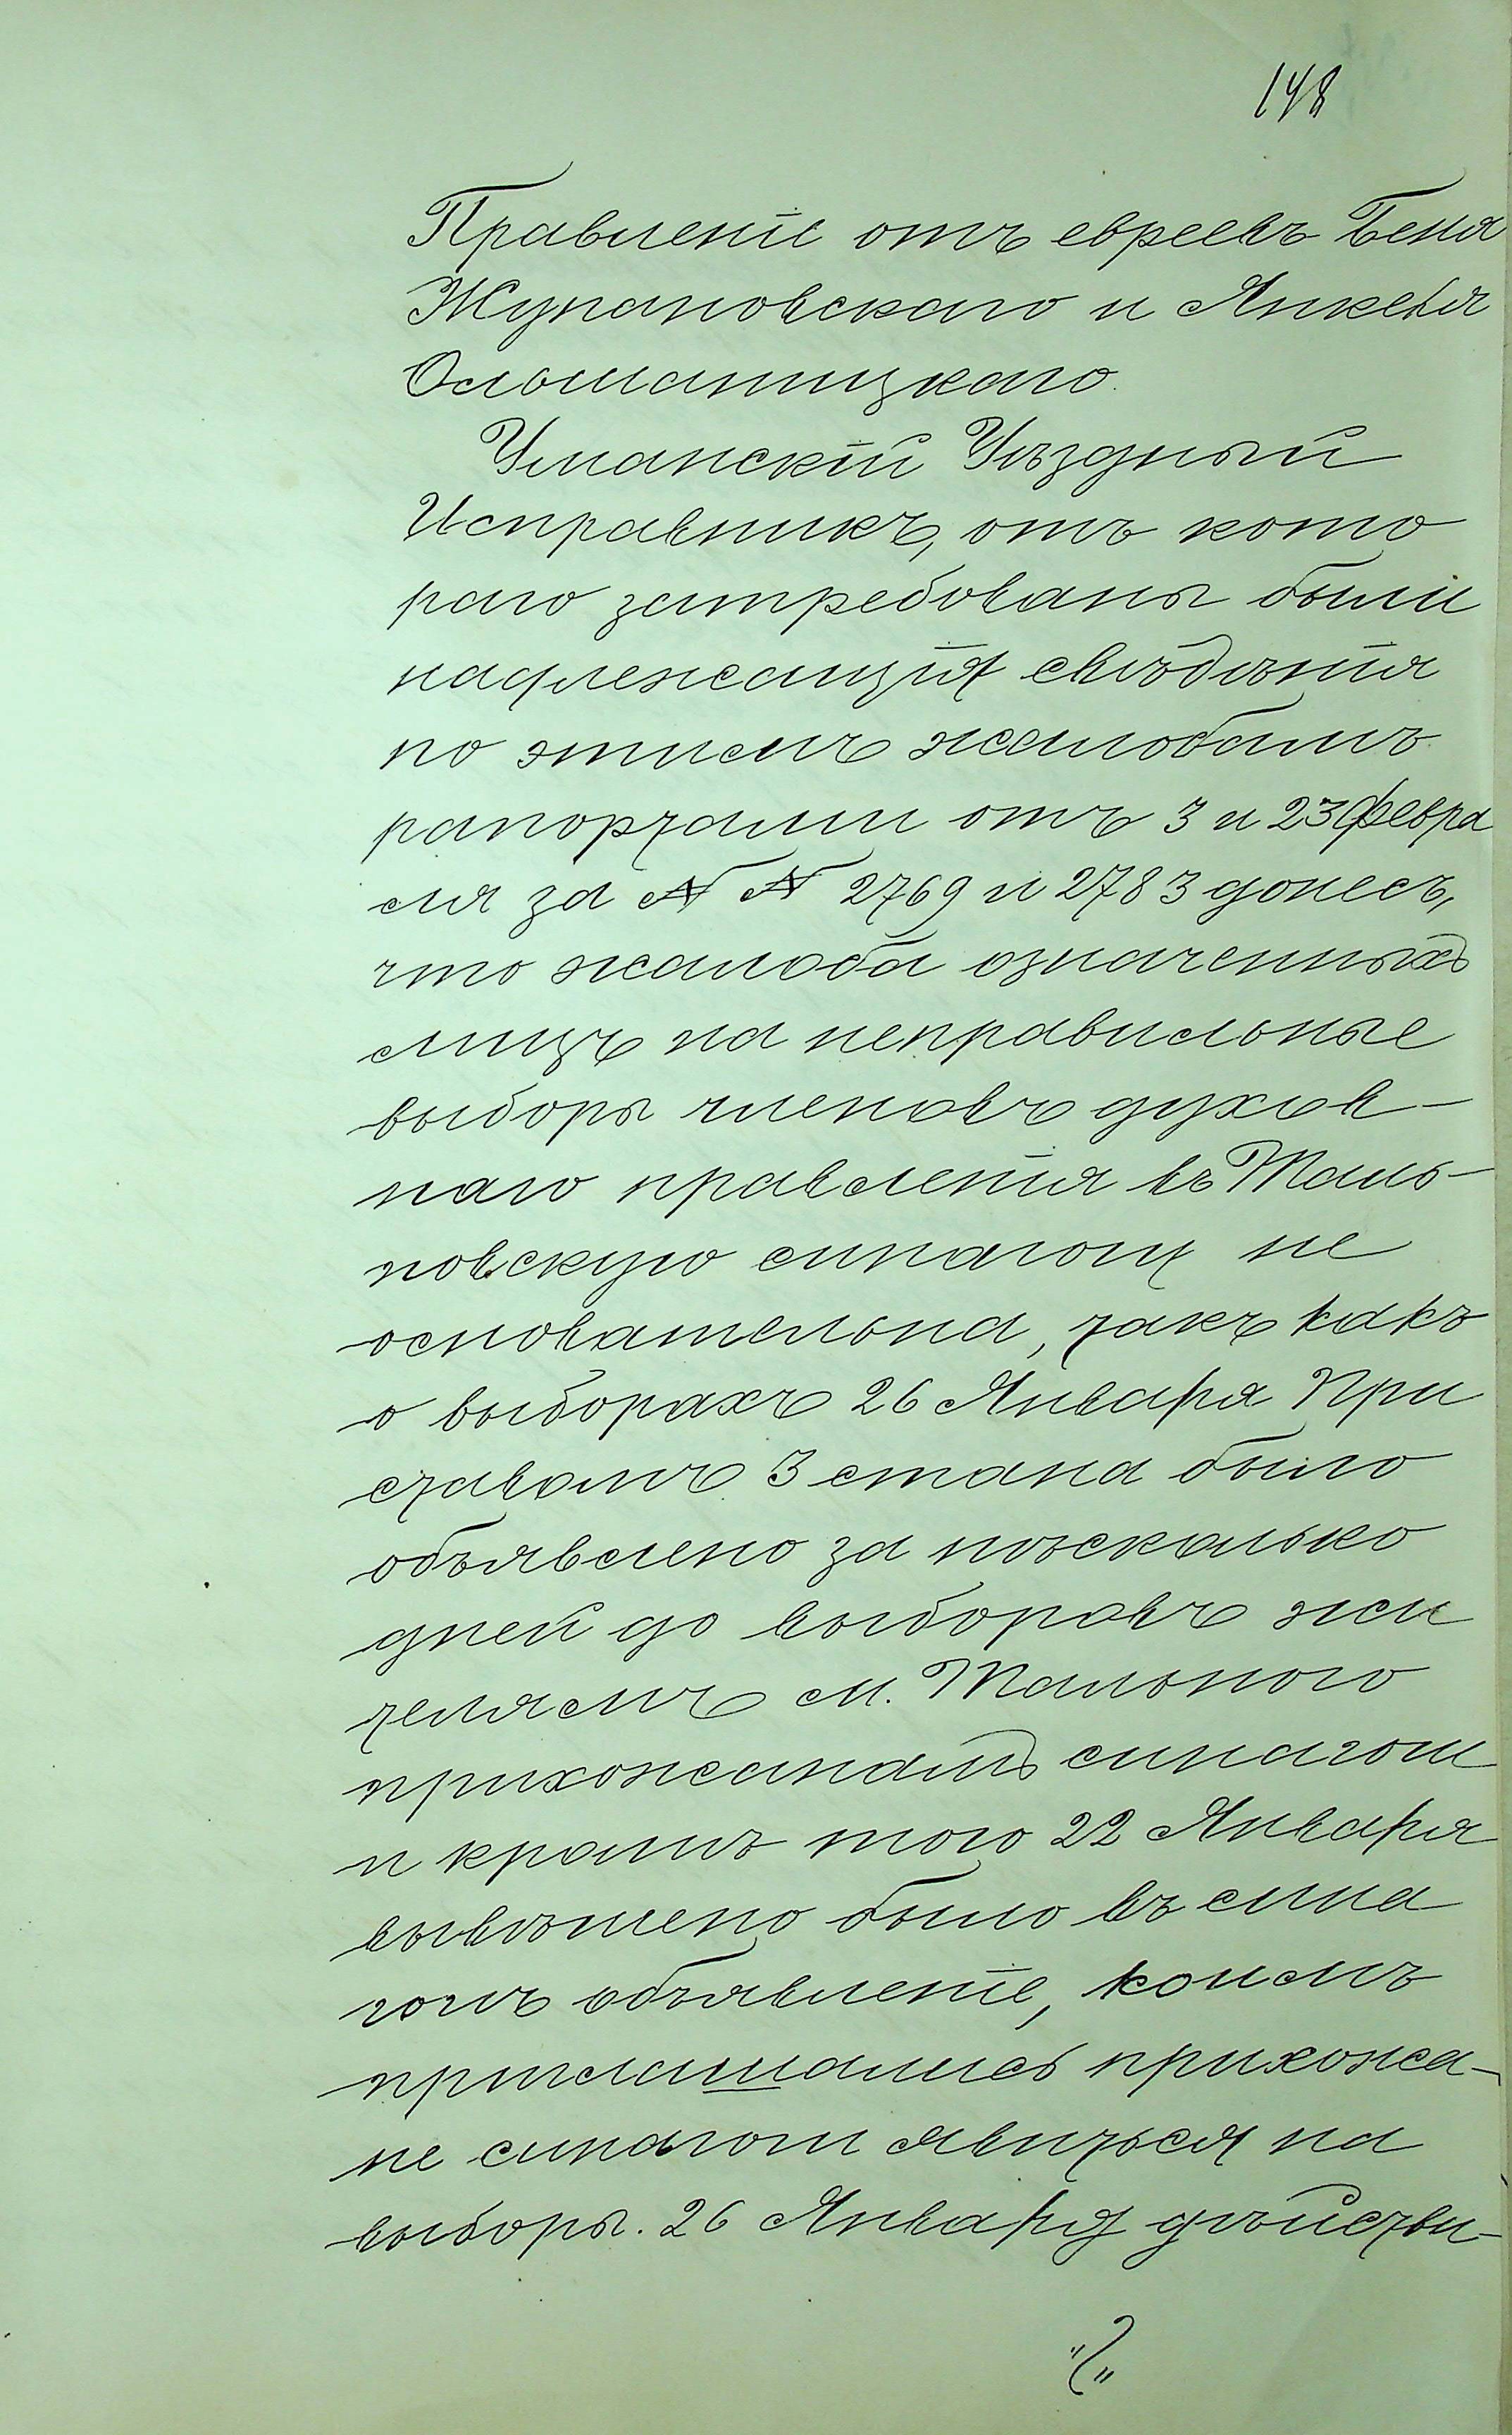 148
Правленіе отъ евреевъ Беня
Жупановскаго и Янкеля
Ольшаницкаго.
Уманскій Уѣздный
Исправникъ, отъ кото
раго затребованы были
надлежащія свѣдѣнія
по этимъ жалобамъ
рапортами отъ 3 и 23 февра
ля за № № 2769 и 2783 донесъ,
что жалоба означенныхъ
лицъ на неправильные
выборы членовъ духов-
наго правленія въ Таль-
новскую синагогу не
основательна, такъ какъ
о выборахъ 26 Января При
ставомъ 3 стана было
объявлено за нѣсколько
дней до выборовъ жи
телямъ м. Тального
прихожанамъ синагоги
и кромѣ того 22 Января
вывѣшено было въ сина
гогѣ объявленіе, коимъ
приглашались прихожа-
не синагоги явиться на
выборы. 26 Января дѣйстви-